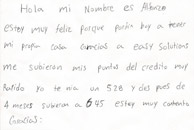 Hola mi Nombre es Alfonzo
estoy muy feliz porque portin boy a tener
mi propia casa Gracias a easy solutions
me subieron mis puntos del credito muy
Rapido yo tenia un 528 y despues de
4 meses subieron a 645 estoy muy contento
Gracias: